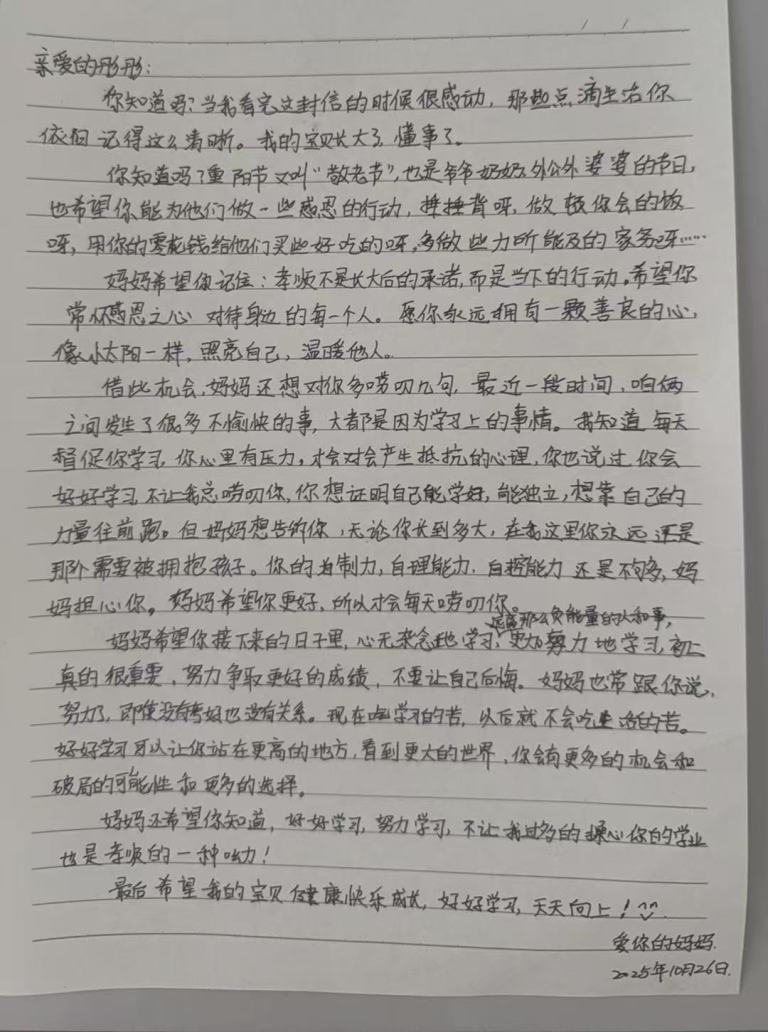 亲爱的彤彤：
你知道吗？当我看完这封信的时候很感动，那些点滴生活你
依旧记得这么清晰。我的宝贝长大了，懂事了。
你知道吗？重阳节又叫“敬老节”，也是爷爷奶奶，外公外婆婆的节日，
也希望你能为他们做一些感恩的行动，捶捶背呀，做顿你会的饭
呀，用你的零花钱给他们买些好吃的呀，多做些力所能及的家务呀……
妈妈希望你记住：孝顺不是长大后的承诺，而是当下的行动。希望你
常怀感恩之心 对待身边的每一个人。愿你永远拥有一颗善良的心，
像小太阳一样，照亮自己，温暖他人。
借此机会，妈妈还想对你多唠叨几句，最近一段时间，咱俩
之间发生了很多不愉快的事，大都是因为学习上的事情。我知道每天
督促你学习，你心里有压力，才会对会产生抵抗的心理，你也说过你会
好好学习，不让我总唠叨你，你想证明自己能学好，能独立，想靠自己的
力量往前跑。但妈妈想告诉你，无论你长到多大，在我这里你永远还是
那个需要被拥抱孩子。你的自制力，自理能力，自控能力还是不够多，妈
妈担心你。妈妈希望你更好，所以才会每天唠叨你。
远离那么负能量的人和事，
妈妈希望你接下来的日子里，心无杂念地学习，更加努力地学习，初二
真的很重要，努力争取更好的成绩，不要让自己后悔。妈妈也常跟你说，
努力了，即使没有考好也没有关系。现在吃学习的苦，以后就不会吃生活的苦。
好好学习可以让你站在更高的地方，看到更大的世界，你会有更多的机会和
破局的可能性和更多的选择。
妈妈还希望你知道，好好学习，努力学习，不让我过多的操心你的学业
也是孝顺的一种呦！
最后希望我的宝贝健康快乐成长，好好学习，天天向上！^^
爱你的妈妈.
2025年10月26日.